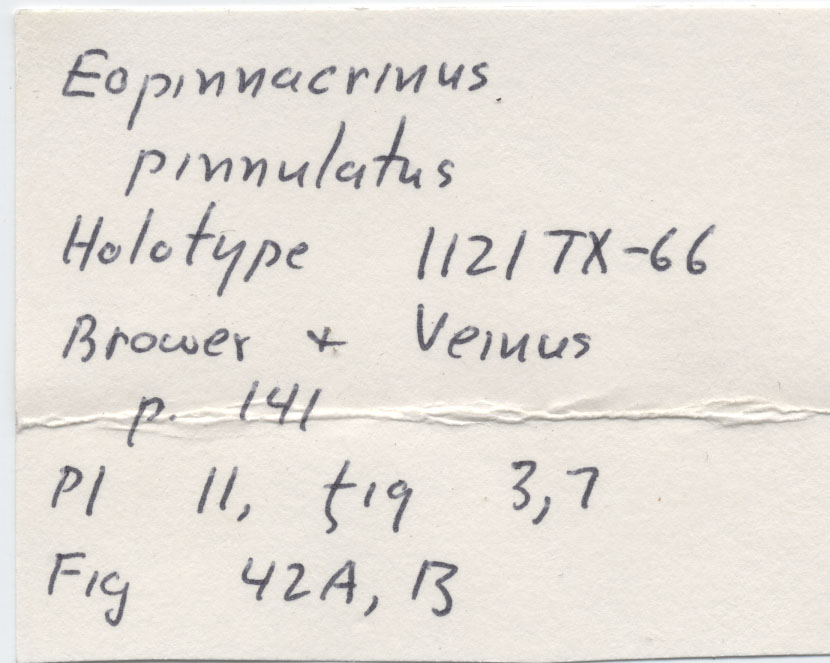 Eopinnacrinus
pinnulatus
Holotype 1121 TX-66
Brower + Veinus
p. 141
Pl 11, fig 3,7
Fig 42A, B